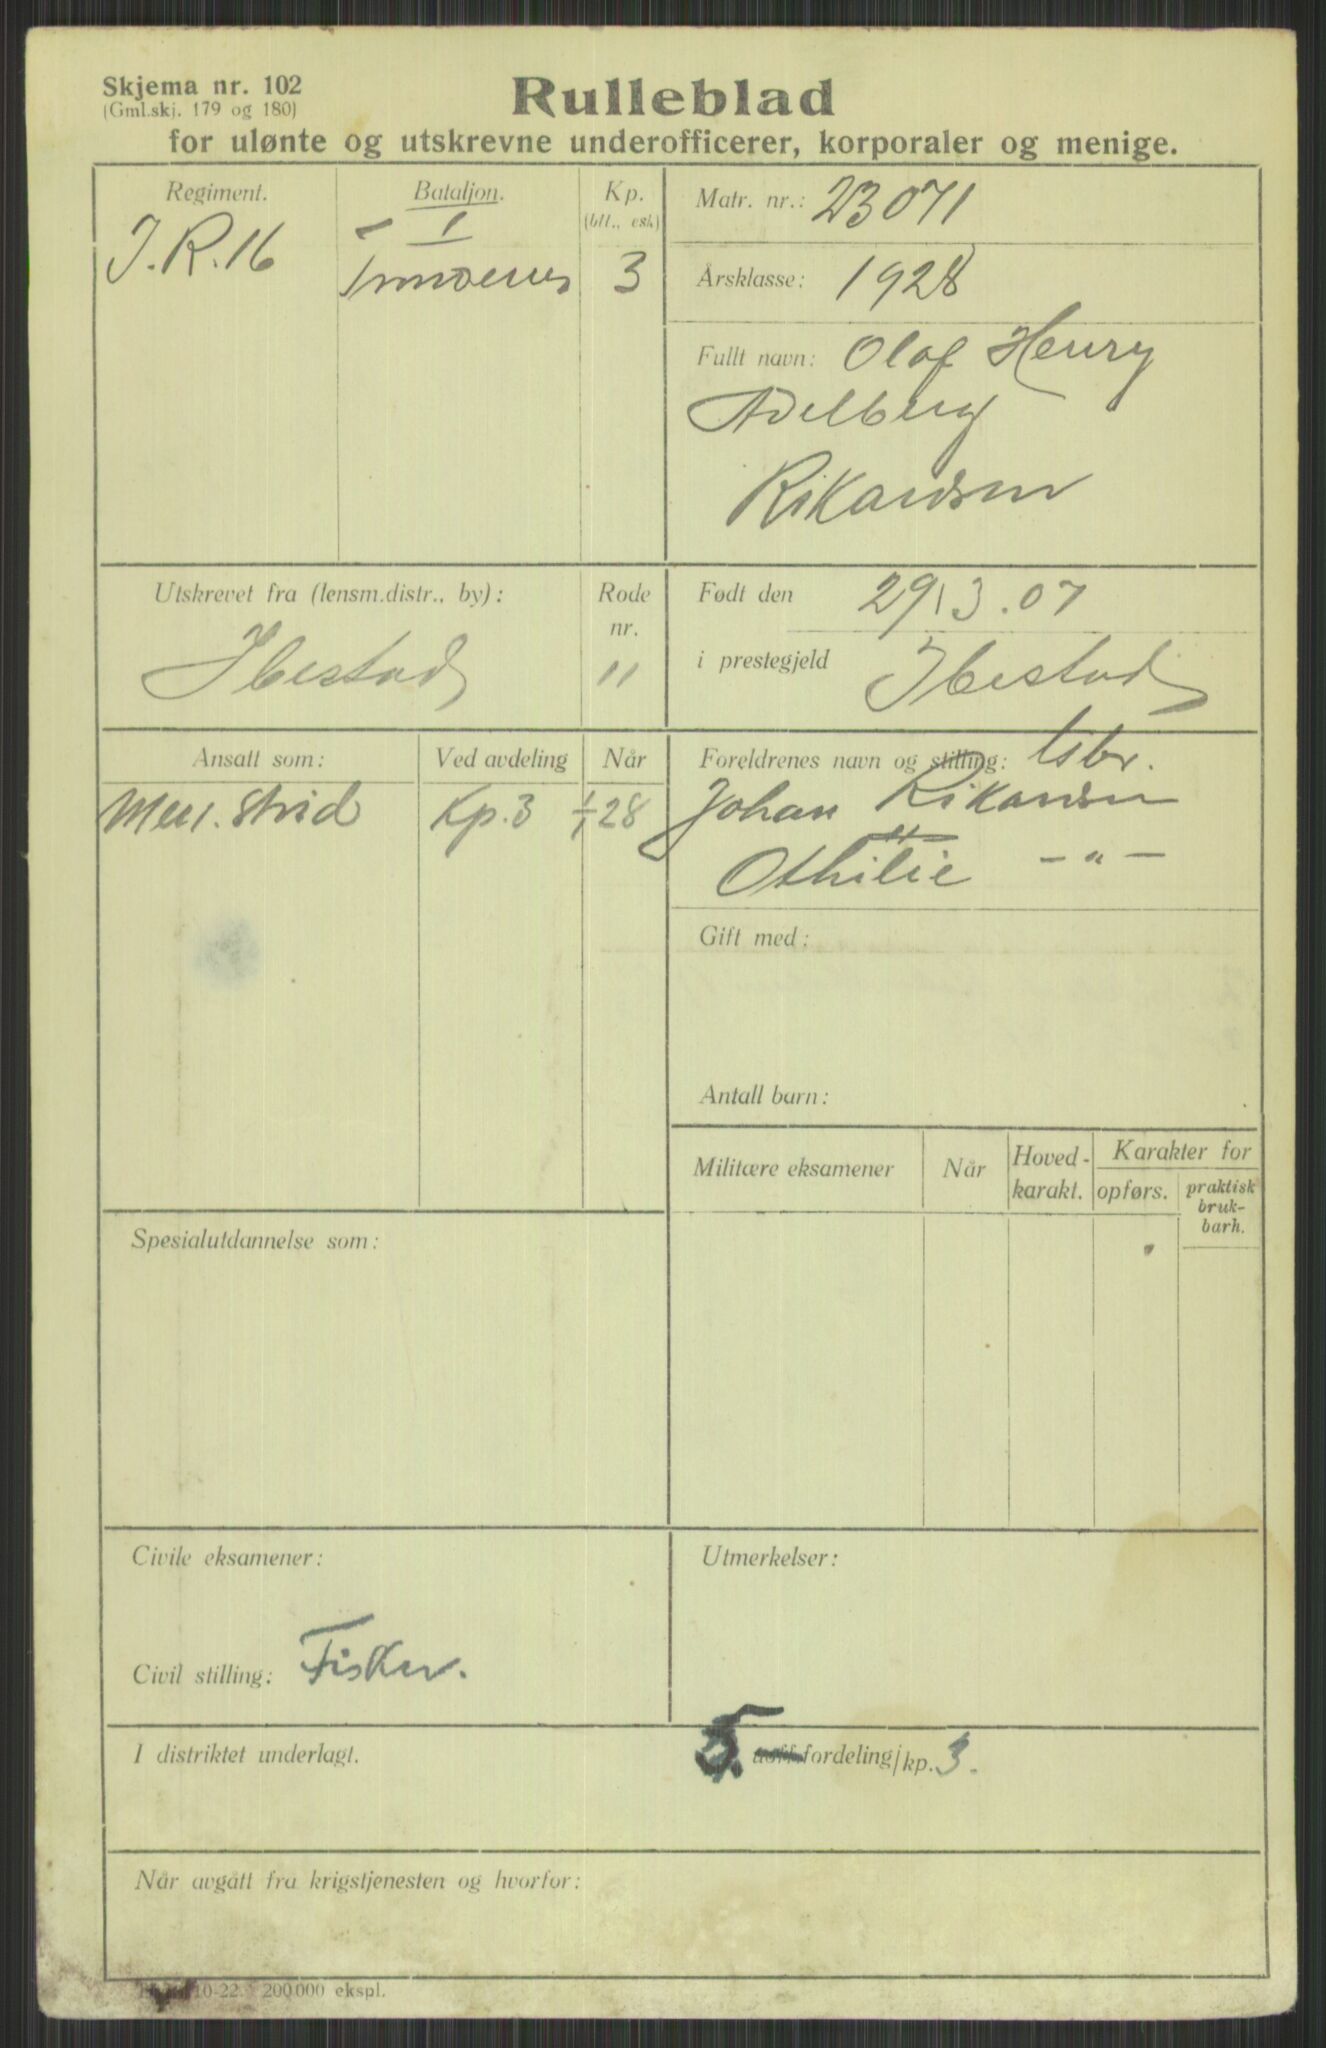 Skjema nr. 102
(Gml.skj. 179 og 180)
Rulleblad
for ulønte og utskrevne underofficerer, korporaler og menige.
Regiment.
J.R.16
Bataljon.
I
Kp.
(btt., esk)
3
Matr. nr.: 23071
Årsklasse: 1928
Fullt navn: Olaf Henry
Adelberg
Rikardsen
Utskrevet fra (lensm.distr., by):
Ibestad
Rode
nr.
"
Født den 29/3.07
i prestegjeld Ibestad
Ansatt som: Ved avdeling Når
Men. strid Kp.3 1/1 28
Foreldrenes navn og stilling: Gsbr.
Johan Rikardsen
Othilie — " —
Gift med:
Antall barn:
Militære eksamener Når Hoved-
karakt. Karakter for
opførs. praktisk
bruk-
barh.
Spesialutdannelse som:
Civile eksamener:
Civil stilling: Fisker.
Utmerkelser:
I distriktet underlagt.
5. uoff. fordeling/kp. 3.
Når avgått fra krigstjenesten og hvorfor:
10-22. 200 000 ekspl.